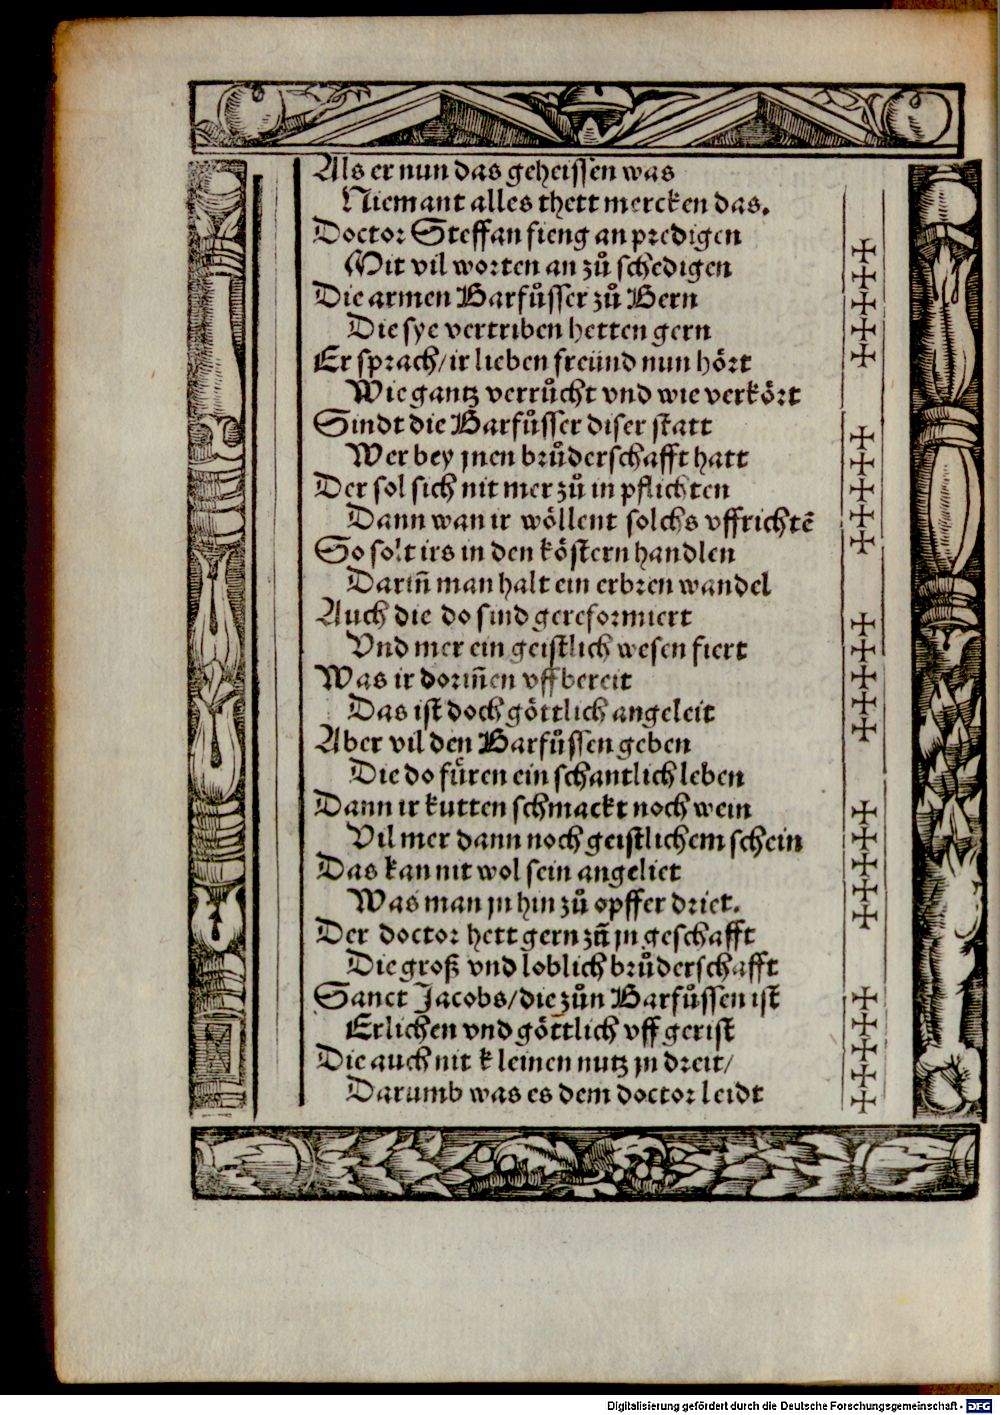 Als er nun das geheissen was
Niemant alles thett mercken das.
Doctor Steffan fieng an predigen
Mit vil worten an zů schedigen
Die armen Barfůsser zů Bern
Die sye vertriben hetten gern
Er sprach/ir lieben freünd nun hört
Wie gantz verrůcht vnd wie verkört
Sindt die Barfůsser diser statt
Wer bey jnen brůderschafft hatt
Der sol sich nit mer zů in pflichten
Dann wan ir wöllent solchs vffrichtē
So solt irs in den köstern handlen
Dariñ man halt ein erbren wandel
Auch die do sind gereformiert
Vnd mer ein geistlich wesen fiert
Was ir doriñen vffbereit
Das ist doch göttlich angeleit
Aber vil den Barfůssen geben
Die do fu̎ren ein schantlich leben
Dann ir kutten schmackt noch wein
Vil mer dann noch geistlichem schein
Das kan nit wol sein angeliet
Was man jn hin zů opffer driet.
Der doctor hett gern zů jn geschafft
Die groß vnd loblich brůderschafft
Sanct Jacobs/die zůn Barfůssen ist
Erlichen vnd göttlich vff gerist
Die auch nit kleinen nutz jn dreit/
Darumb was es dem doctor leidt
Digitalisierung gefördert durch die Deutsche Forschungsgemeinschaft - DFG